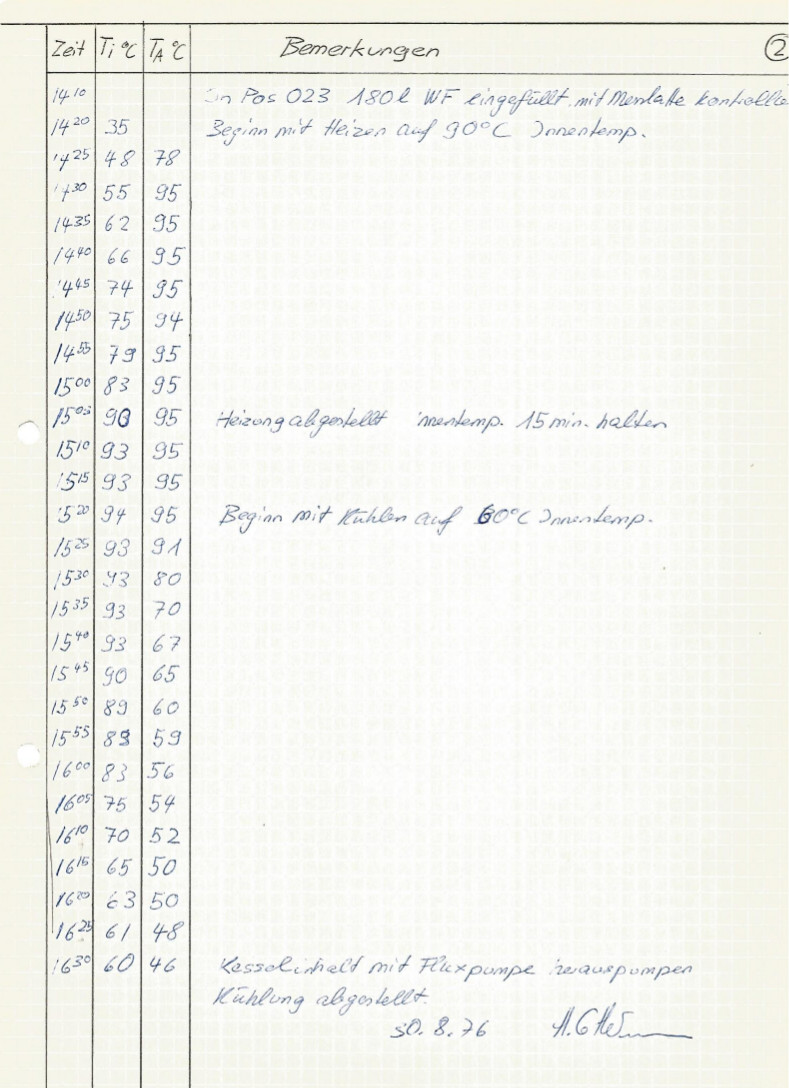 Zeit Ti °C TA °C Bemerkungen 2
14 10 In Pos 023 180 l WF eingefüllt mit Messlatte kontrolle
14 20 35 Beginn mit Heizen auf 90°C Innentemp.
14 25 48 78
14 30 55 95
14 35 62 95
14 40 66 95
14 45 74 95
14 50 75 94
14 55 79 95
15 00 83 95
15 05 90 95 Heizung abgestellt innentemp. 15 min. halten
15 10 93 95
15 15 93 95
15 20 94 95 Beginn mit Kühlen auf 60°C Innentemp.
15 25 93 91
15 30 93 80
15 35 93 70
15 40 93 67
15 45 90 65
15 50 89 60
15 55 89 59
16 00 83 56
16 05 75 54
16 10 70 52
16 15 65 50
16 20 63 50
16 25 61 48
16 30 60 46 Kesselinhalt mit Fluxpumpe herauspumpen
Kühlung abgestellt.
30.8.76